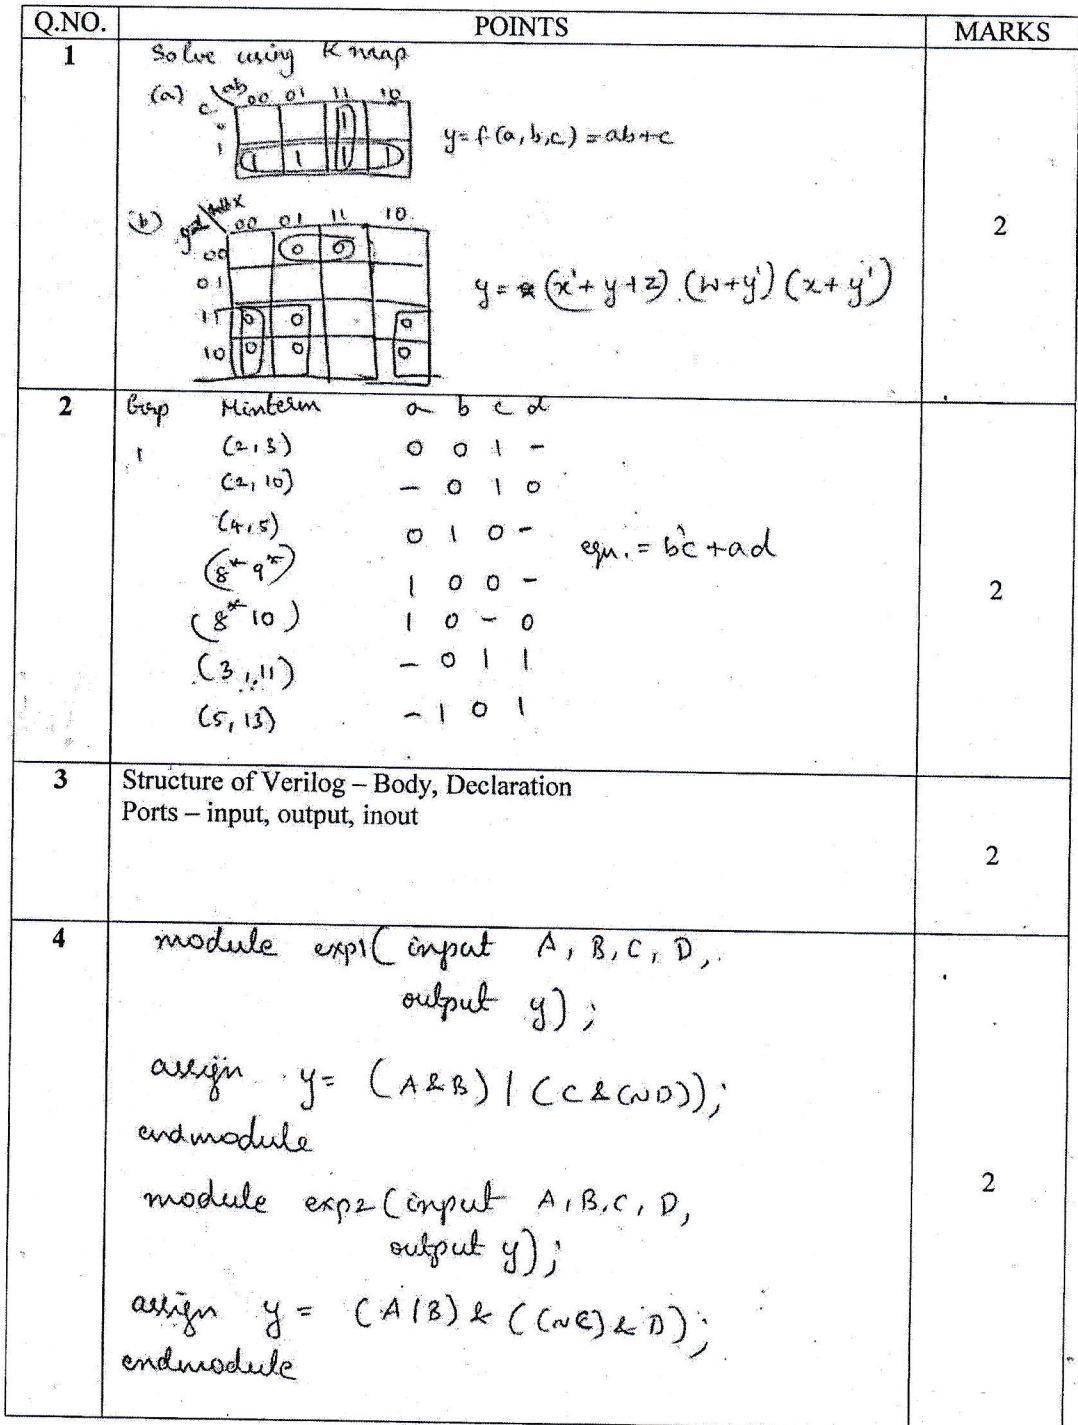 Q.NO. POINTS MARKS
1 Solve using K map
(a) c ab 00 01 11 10
0 1
1 1 1 1 1
y = f(a,b,c) = ab+c
(b) yz x 00 01 11 10
00 0 0
01
11 0 0 0
10 0 0 0
y = (x'+y+z) (w+y') (x+y')
2
2 Grp Minterm a b c d
1 (2,3) 0 0 1 -
(2,10) - 0 1 0
(4,5) 0 1 0 -
(8* 9*) 1 0 0 -
(8* 10) 1 0 - 0
(3,11) - 0 1 1
(5,13) - 1 0 1
eqn. = b'c + ad
2
3 Structure of Verilog – Body, Declaration
Ports – input, output, inout
2
4 module exp1( input A, B, C, D,
output y);
assign y= (A&B) | (C&(~D));
endmodule
module exp2 (input A,B,C, D,
output y);
assign y = (A|B) & ((~C)& D);
endmodule
2